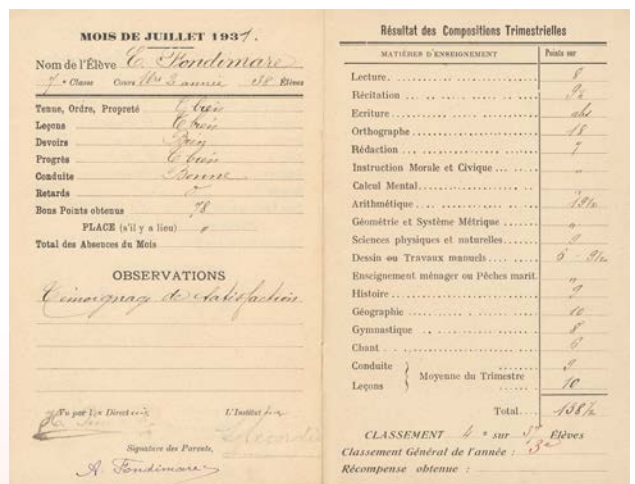 MOIS DE JUILLET 1931.
Nom de l'Élève E. Fondimare
7e Classe Cours 2 année 38 Élèves
Tenue, Ordre, Propreté T bien
Leçons T bien
Devoirs Bien
Progrès T bien
Conduite Bonne
Retards
Bons Points obtenus 78
PLACE (s'il y a lieu) "
Total des Absences du Mois
OBSERVATIONS
Témoignage de Satisfaction
Vu par Direct
L'Institut
Signature des Parents,
A. Fondimare
Résultat des Compositions Trimestrielles
MATIÈRES D'ENSEIGNEMENT Points sur
Lecture 8
Récitation 9½
Ecriture abs
Orthographe 18
Rédaction 7
Instruction Morale et Civique "
Calcul Mental "
Arithmétique 19½
Géométrie et Système Métrique "
Sciences physiques et naturelles 9
Dessin ou Travaux manuels 6 - 9½
Enseignement ménager ou Pêches marit. "
Histoire 9
Géographie 10
Gymnastique 8
Chant 6
Conduite 9
Moyenne du Trimestre
Leçons 10
Total 138½
CLASSEMENT 4e sur Élèves
Classement Général de l'année : 3e
Récompense obtenue :